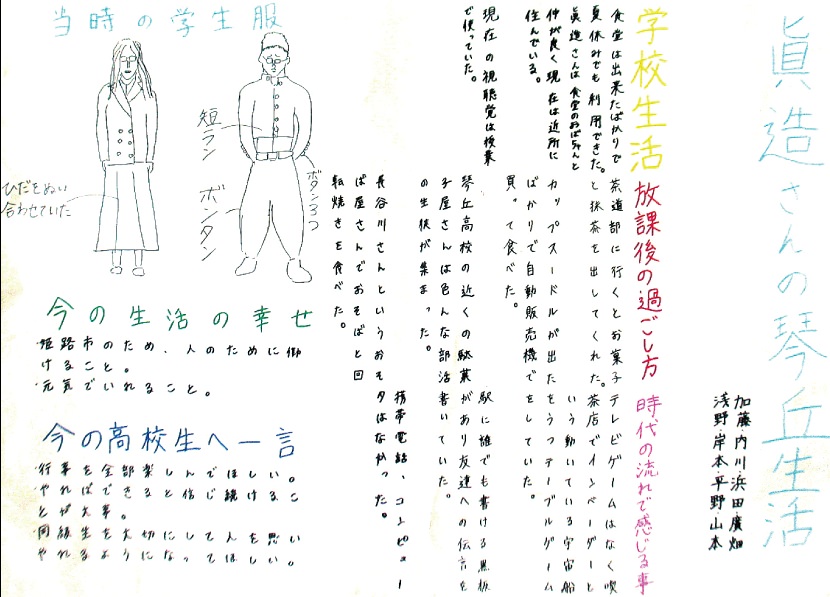 眞造さんの琴丘生活
加藤・内川・浜田・廣畑
浅野・岸本・平野・山本
学校生活
食堂は出来たばかりで
夏休みでも利用できた。
眞造さんは食堂のおばちゃんと
仲が良く現在は近所に
住んでいる。
現在の視聴覚は授業
で使っていた。
放課後の過ごし方
茶道部に行くとお菓子
と抹茶を出してくれた。
カップヌードルが出た
ばかりで自動販売機で
買って食べた。
琴丘高校の近くの駄菓
子屋さんは色んな部活
の生徒が集まった。
長谷川さんというおそ
ば屋さんでおそばと回
転焼きを食べた。
時代の流れで感じる事
テレビゲームはなく喫
茶店でインベーダーと
いう動いている宇宙船
をうつテーブルゲーム
をしていた。
駅に誰でも書ける黒板
があり友達への伝言を
書いていた。
携帯電話、コンピュー
タはなかった。
当時の学生服
短ラン
ボタン3つ
ボンタン
ひだをぬい
合わせていた
今の生活の幸せ
・姫路市のため、人のために働
けること。
・元気でいれること。
今の高校生へ一言
・行事を全部楽しんでほしい。
・やればできると信じ続けるこ
とが大事。
・同級生を大切にして人を思い
やれるようになってほしい。